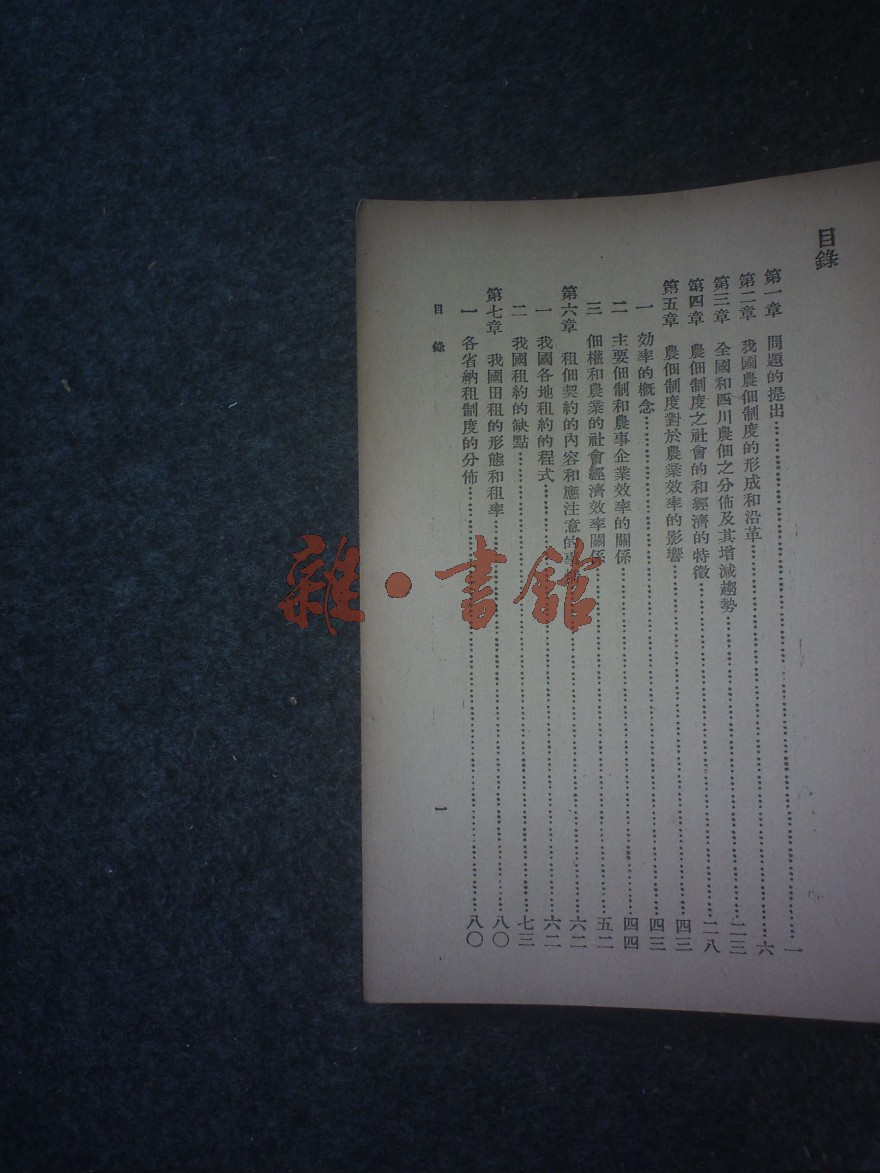 目錄
第一章 問題的提出 一
第二章 我國農佃制度的形成和沿革 六
第三章 全國和四川農佃之分佈及其增減趨勢 二三
第四章 農佃制度之社會的和經濟的特徵 二八
第五章 農佃制度對於農業效率的影響 四三
一 効率的概念 四三
二 主要佃制和農事企業效率的關係 四四
三 佃權和農業的社會經濟效率關係 五二
第六章 租佃契約的內容和應注意的 六二
一 我國各地租約的程式 六二
二 我國租約的缺點 七三
第七章 我國田租的形態和租率 八〇
一 各省納租制度的分佈 八〇
目錄 一
雜·書館